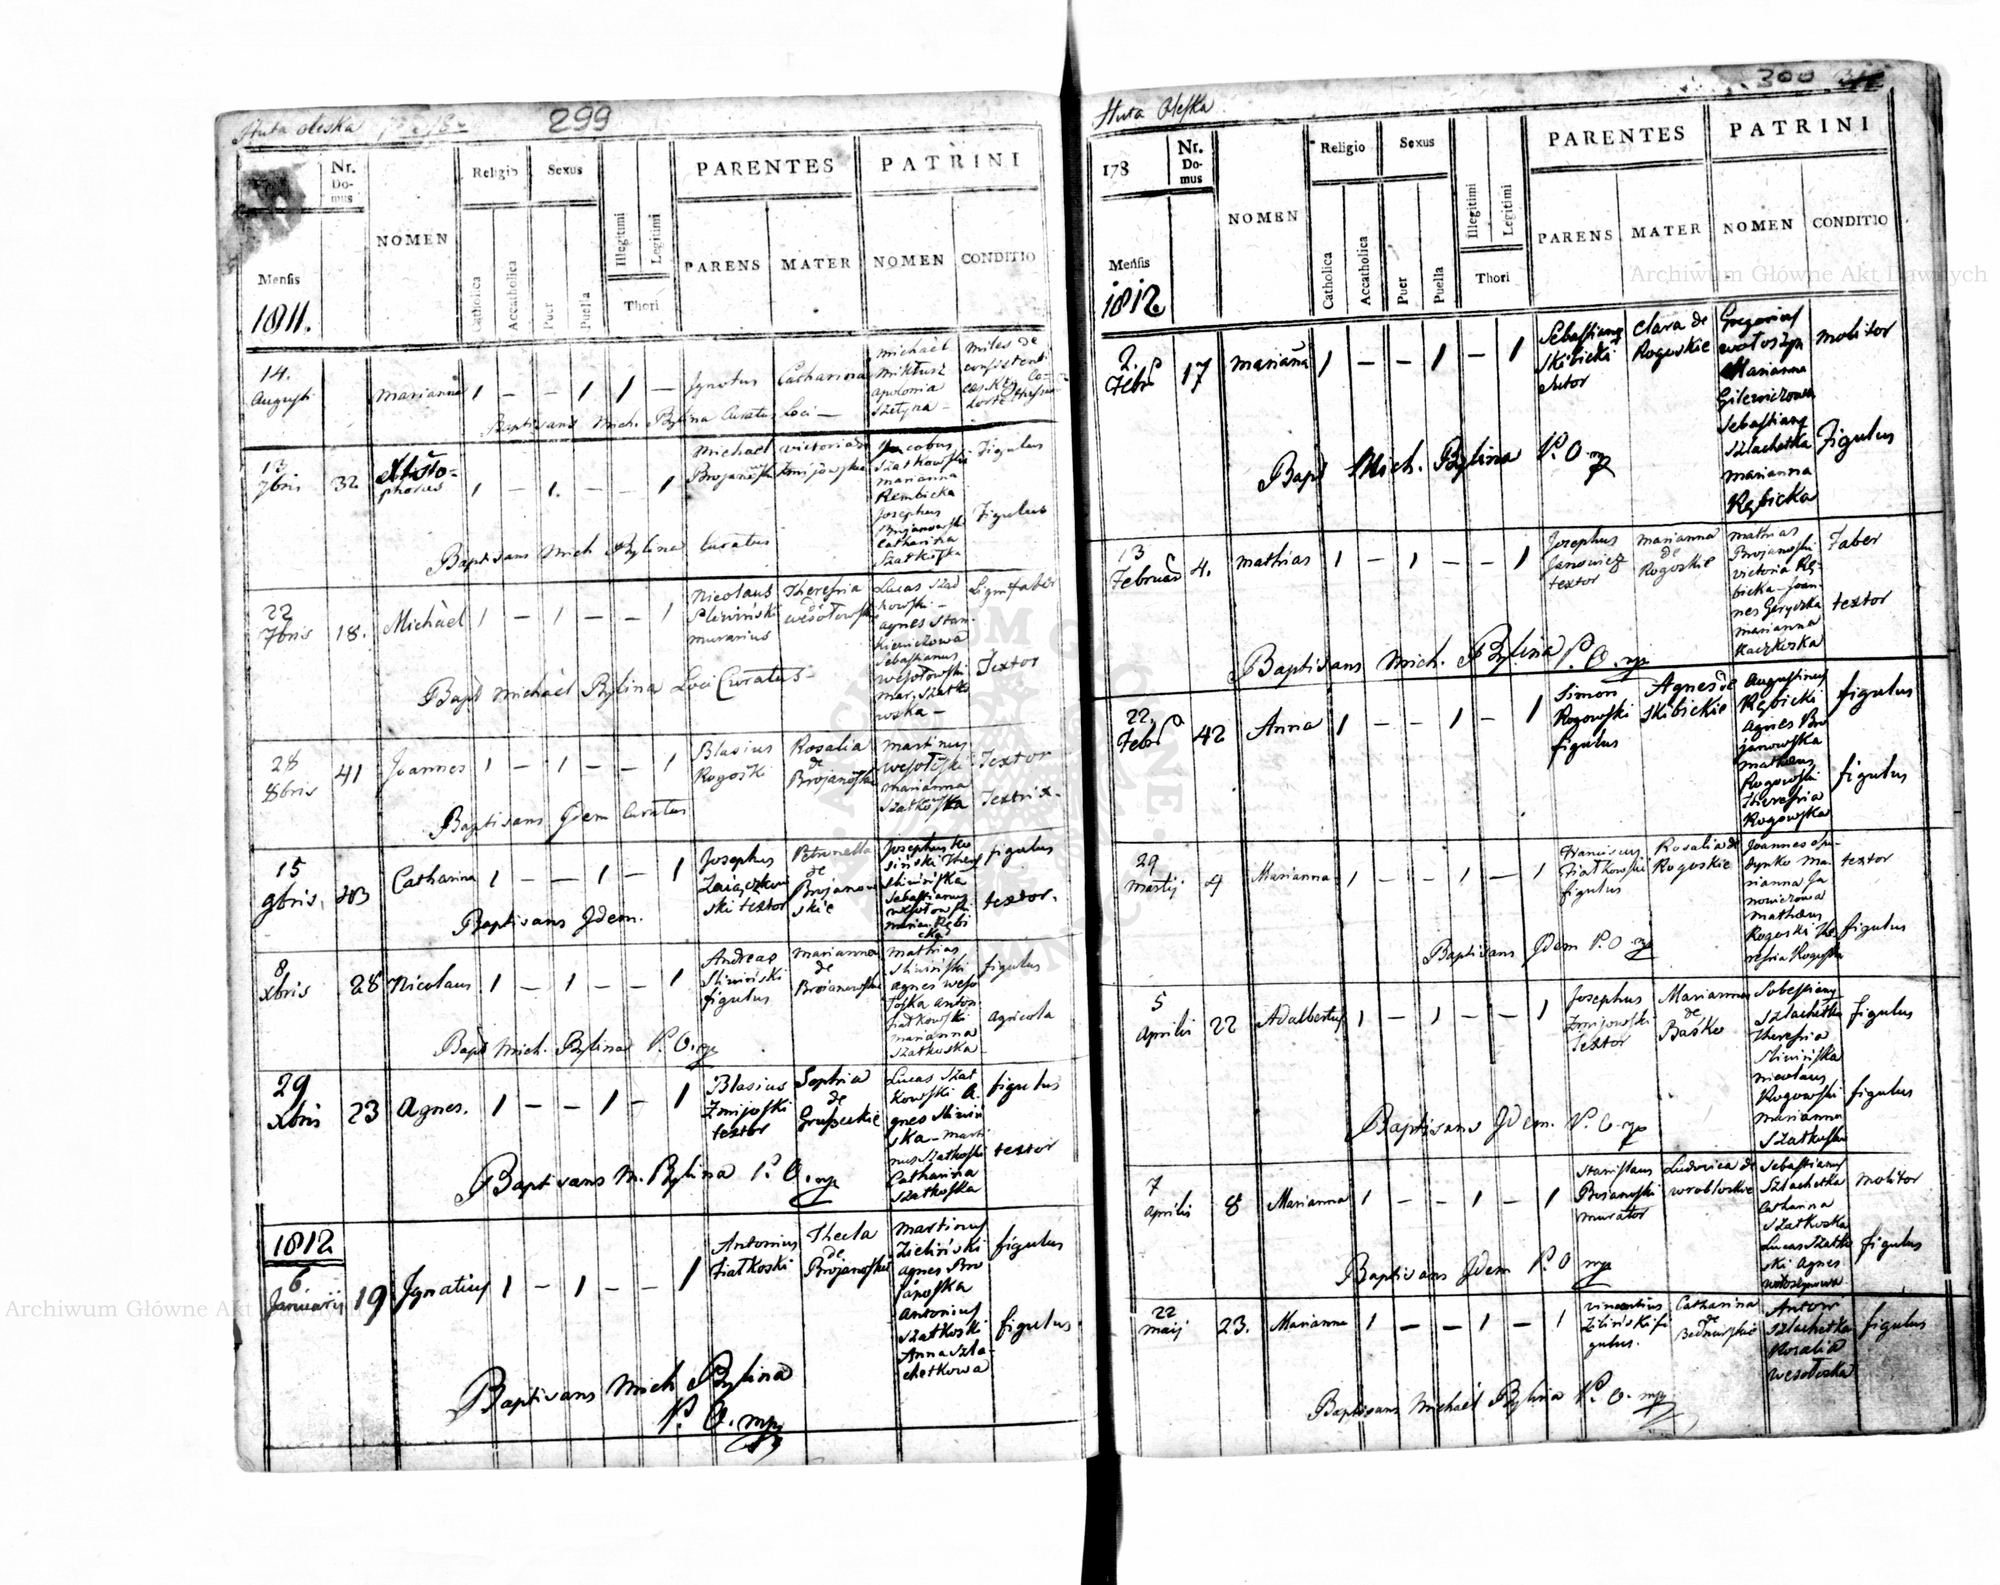 Huta oleska
299
Nr. Domus
NOMEN
Religio
Sexus
Catholica
Accatholica
Puer
Puella
Illegitimi
Legitimi
Thori
PARENTES
PARENS
MATER
PATRINI
NOMEN
CONDITIO
Mensis
1811.
14. Augusti
Marianna 1 — — 1 1 —
Ignotus
Catharina
Michael
apolonia
miles de
Baptisans Mich. Bylina Curatus Loci —
7bris 32
1 — 1. — — 1
Michael
victoria de
Jacobus
Szatkowski
marianna
Rembicka
Josephus
Catharina
Figulus
Figulus
Baptisans Mich Bylina Curatus
22 7bris 18. Michael 1 — 1 — — 1
Nicolaus
Sliwiński
murarius
Theresia
Lucas Szat
kowski —
agnes Stan
Sebastianus
wesołowski
mar. Szatko
wska —
Textor
Bapt Michael Bylina Loci Curatus
28 8bris 41 Joannes 1 — 1 — — 1
Blasius
Rogoski
Rosalia
de
Martinus
marianna
Textor
Textrix.
Baptisans Idem Curatus
15 9bris. Catharina 1 — — 1 — 1
Josephus
ski textor
Petronella
de
Brojanow
skie
figulus
textor.
Baptisans Idem.
8 xbris 28 Nicolaus 1 — 1 — — 1
Andreas
Sliwiński
figulus
Marianna
de
Brojanowskie
mathias
Sliwiński
agnes weso
łoska anton
fiatkowski
marianna
Szatkoska
figulus
Agricola
Bapt Mich. Bylina P. O. mp
29 xbris 23 Agnes. 1 — — 1 — 1
Blasius
Żmijoski
textor
Sophia
de
Lucas Szat
kowski A.
gnes Sliwiń
ska — Marti
nus Szatkoski
Catharina
Szatkoska
figulus
textor
Baptisans M. Bylina P. O. mp
1812
6 Januarij 19 Ignatius 1 — 1 — — 1
Antonius
fiatkoski
Thecla
de
Brojanoskie
Martinus
Zieliński
agnes Bro
janoska
Antonius
Szatkoski
Anna Szla
chetkowa
figulus
figulus
Baptisans Mich Bylina
P. O. mp
Huta Oleska
300
178
Nr. Domus
NOMEN
Religio
Sexus
Catholica
Accatholica
Puer
Puella
Illegitimi
Legitimi
Thori
PARENTES
PARENS
MATER
PATRINI
NOMEN
CONDITIO
Mensis
1812.
2. Febr 17 Marianna 1 — — 1 — 1
Sebastianus
Skibicki
Clara de
Rogoskie
Gregorius
wołoszyn
Marianna
Sebastianus
Szlachetka
marianna
Rębicka
molitor
Figulus
Bapt Mich. Bylina P. O mp
13 Februar 4. Mathias 1 — 1 — — 1
Josephus
Janowicz
textor
Marianna
de
Rogoskie
Mathias
Brojanoski
victoria Rę-
bicka — Joan-
nes
marianna
Kaczkoska
Faber
textor
Baptisans Mich. Bylina P. O. mp
22. Febr 42 Anna 1 — — 1 — 1
Simon
Rogowski
figulus
Agnes de
Skibickie
Augustinus
Rębicki
Agnes Bro
janowska
matheus
Rogowski
Theresia
Rogowska
figulus
figulus
29 Martij 4 Marianna 1 — — 1 — 1
Franciscus
Fiatkowski
figulus
Rosalia de
Rogoskie
Joannes
rianna Ja
nowiczowa
Matheus
Rogoski The
resia Rogoska
textor
figulus
Baptisans Idem P. O mp
5 Aprilis 22 Adalbertus 1 — 1 — — 1
Josephus
Żmijowski
Textor
Marianna
de
Baśko
Sebastianus
Szlachetka
Theresia
Sliwińska
Nicolaus
Rogowski
Marianna
Szatkoska
figulus
figulus
Baptisans Idem. P. O mp
7 Aprilis 8 Marianna 1 — — 1 — 1
Stanislaus
Brojanoski
murator
Ludovica de
wrobloskie
Sebastianus
Szlachetka
Catharina
Szatkoska
Lucas Szatko
ski Agnes
wołoszynowa
molitor
figulus
Baptisans Idem P. O mp
22 Maij 23. Marianna 1 — — 1 — 1
vincentius
Zilinski fi
gulus.
Catharina
de
Bednarskie
Anton
Szlachetka
Rosalia
wesołoska
figulus
Baptisans Michael Bylina P. O. mp
Archiwum Główne Akt Dawnych